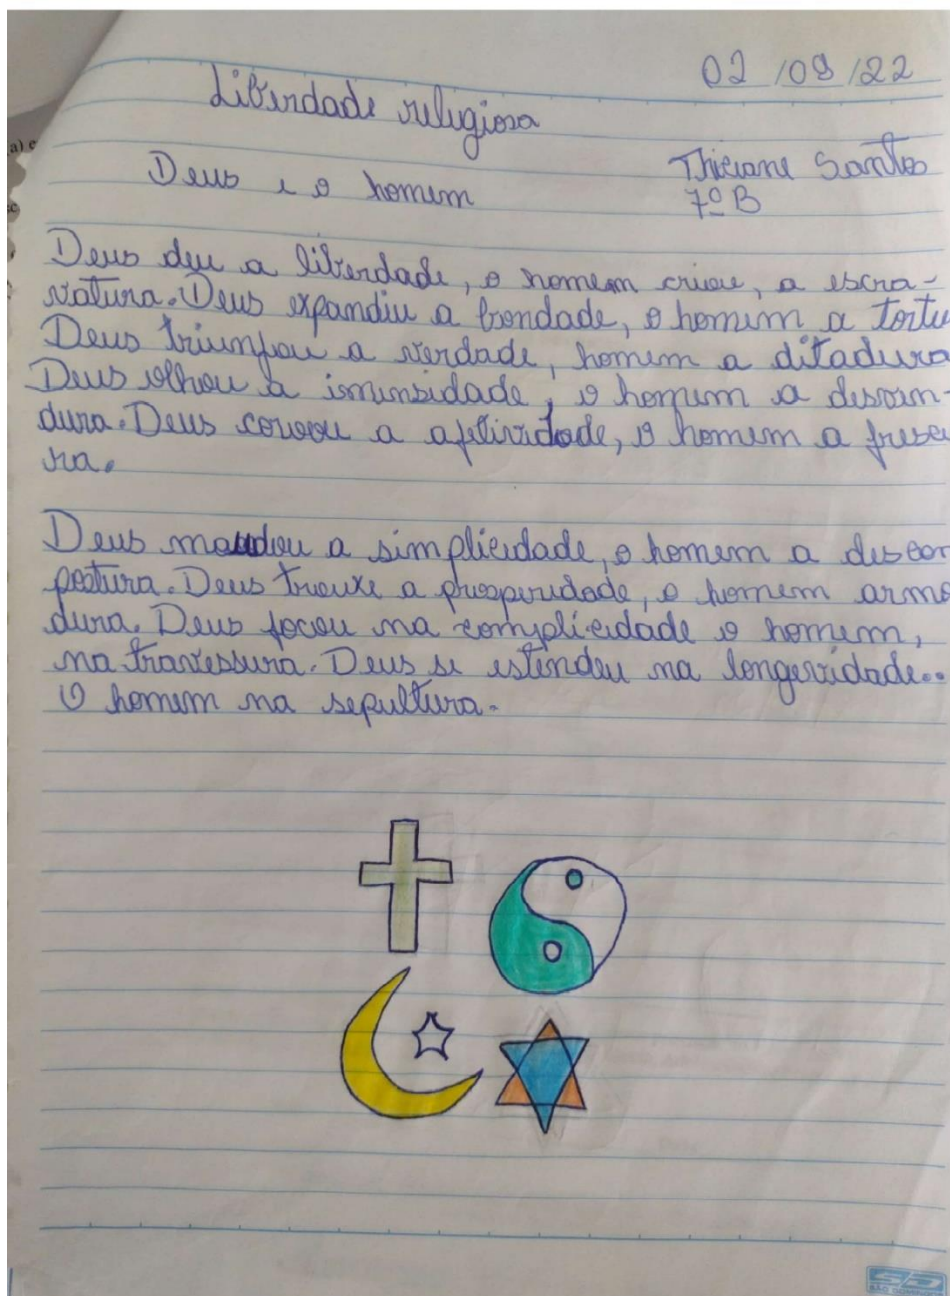 02/08/22
Liberdade religiosa
Thiciane Santos
Deus e o homem
7º B
Deus deu a liberdade, o homem criou, a escra-
vatura. Deus expandiu a bondade, o homem a tortu
Deus triunfou a verdade, homem a ditadura
Deus olhou a imensidade, o homem a desven-
dura. Deus coroou a afetividade, o homem a frescu
ra.
Deus mandou a simplicidade, o homem a descom
postura. Deus trouxe a prosperidade, o homem arma
dura. Deus focou na complicidade o homem,
na travessura. Deus se estendeu na longevidade..
O homem na sepultura.